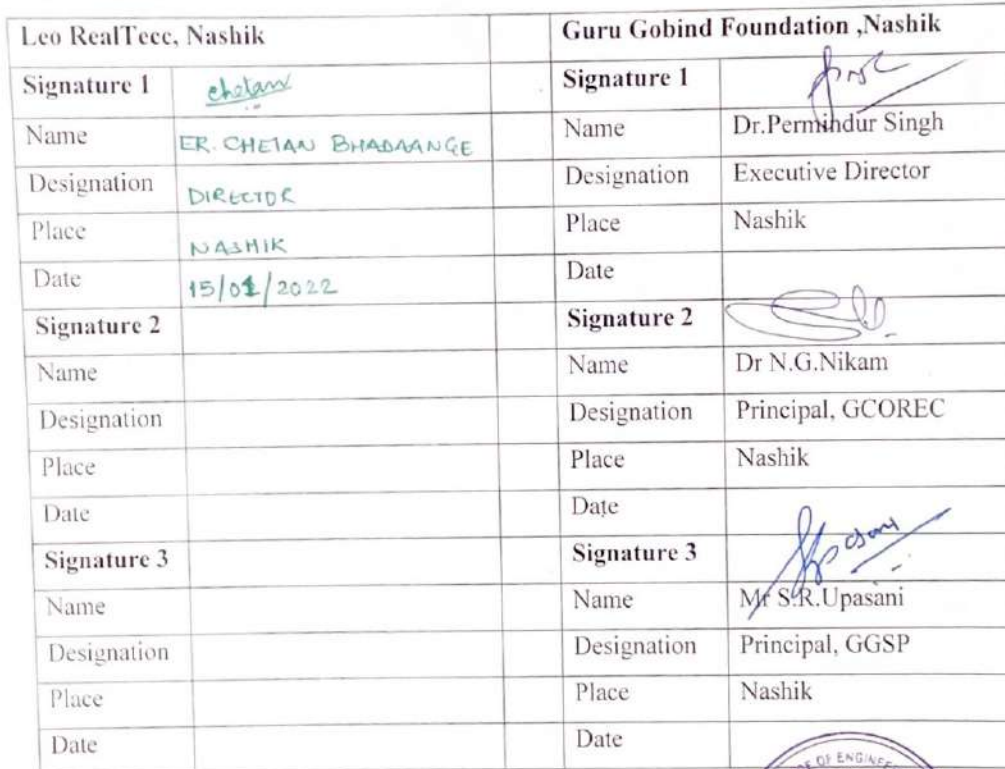 Leo RealTecc, Nashik Guru Gobind Foundation ,Nashik
Signature 1 chetan Signature 1
Name ER. CHETAN BHADAANGE Name Dr.Permindur Singh
Designation DIRECTOR Designation Executive Director
Place NASHIK Place Nashik
Date 15/01/2022 Date
Signature 2 Signature 2
Name Name Dr N.G.Nikam
Designation Designation Principal, GCOREC
Place Place Nashik
Date Date
Signature 3 Signature 3
Name Name Mr S.R.Upasani
Designation Designation Principal, GGSP
Place Place Nashik
Date Date
OF